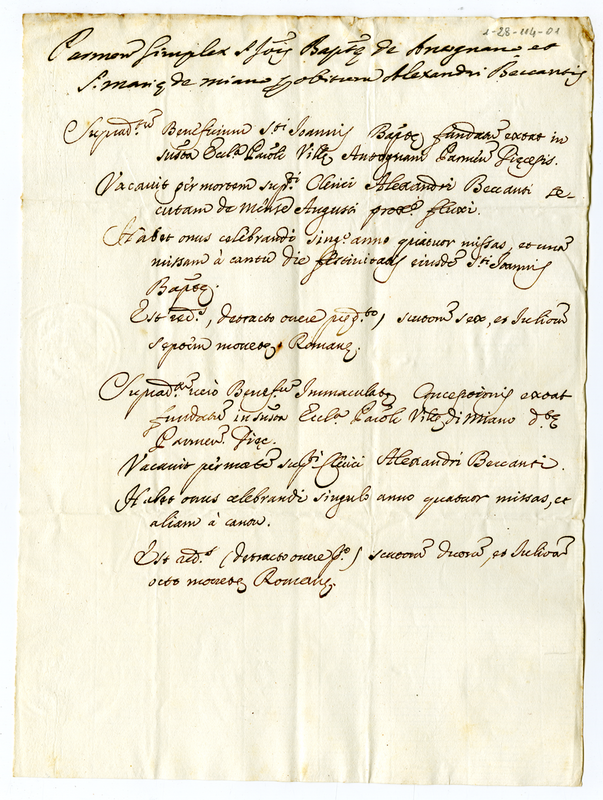 2-28-114-01
Parmen Simplex S. Jois Baptę de Antognano et
S. Marię de Miano p obitum Alexandri Beccantis
Supradm Beneficium Sti Joannis Baptę fundatm extat in
Ecclia Paroli Villę Antognani Parmen Diȩcesis.
Vacavit per mortem supti Clerici Alexandri Beccanti se-
cutam de Mense Augusti proxe fluxi.
Habet onus celebrandi singo anno quatuor missas, et unam
missam à cantu die festivitatis ejusdem Sti Joannis
Baptę.
Est reds, (detracto onere pto) scutorm sex, et Juliorm
septem monetę Romanę.
Supradm vero Benefum Immaculatę Conceptionis extat
fundatm in Ecclia Paroli Villę di Miano
Parmen Diȩc.
Vacavit per mortem supti Clerici Alexandri Beccanti.
Habet onus celebrandi singulo anno quatuor missas, et
aliam à cantu.
Est reds (detracto onere pto) scutorm duorm, et Juliorm
octo monetę Romanę.